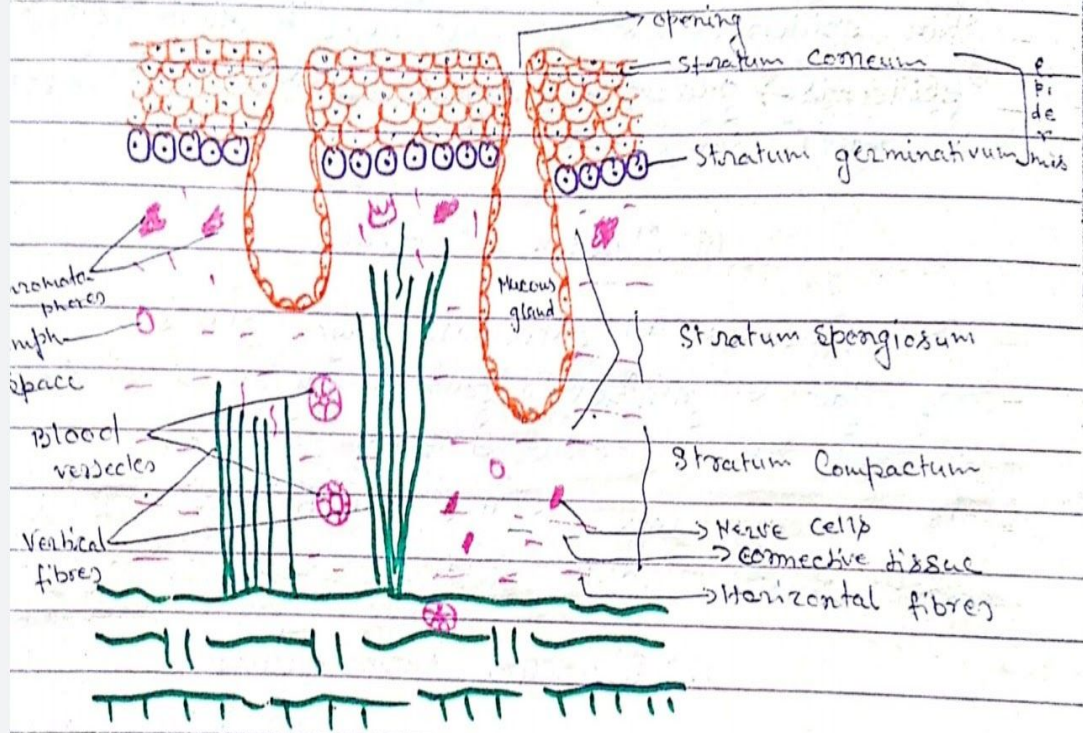 opening
Stratum Corneum
e
pi
de
r
mis
Stratum germinativum
romato
phores
Mucous
gland
mph
space
Stratum Spongiosum
Blood
versecles
Stratum Compactum
Vertical
fibres
Nerve cells
Connective tissue
Horizontal fibres